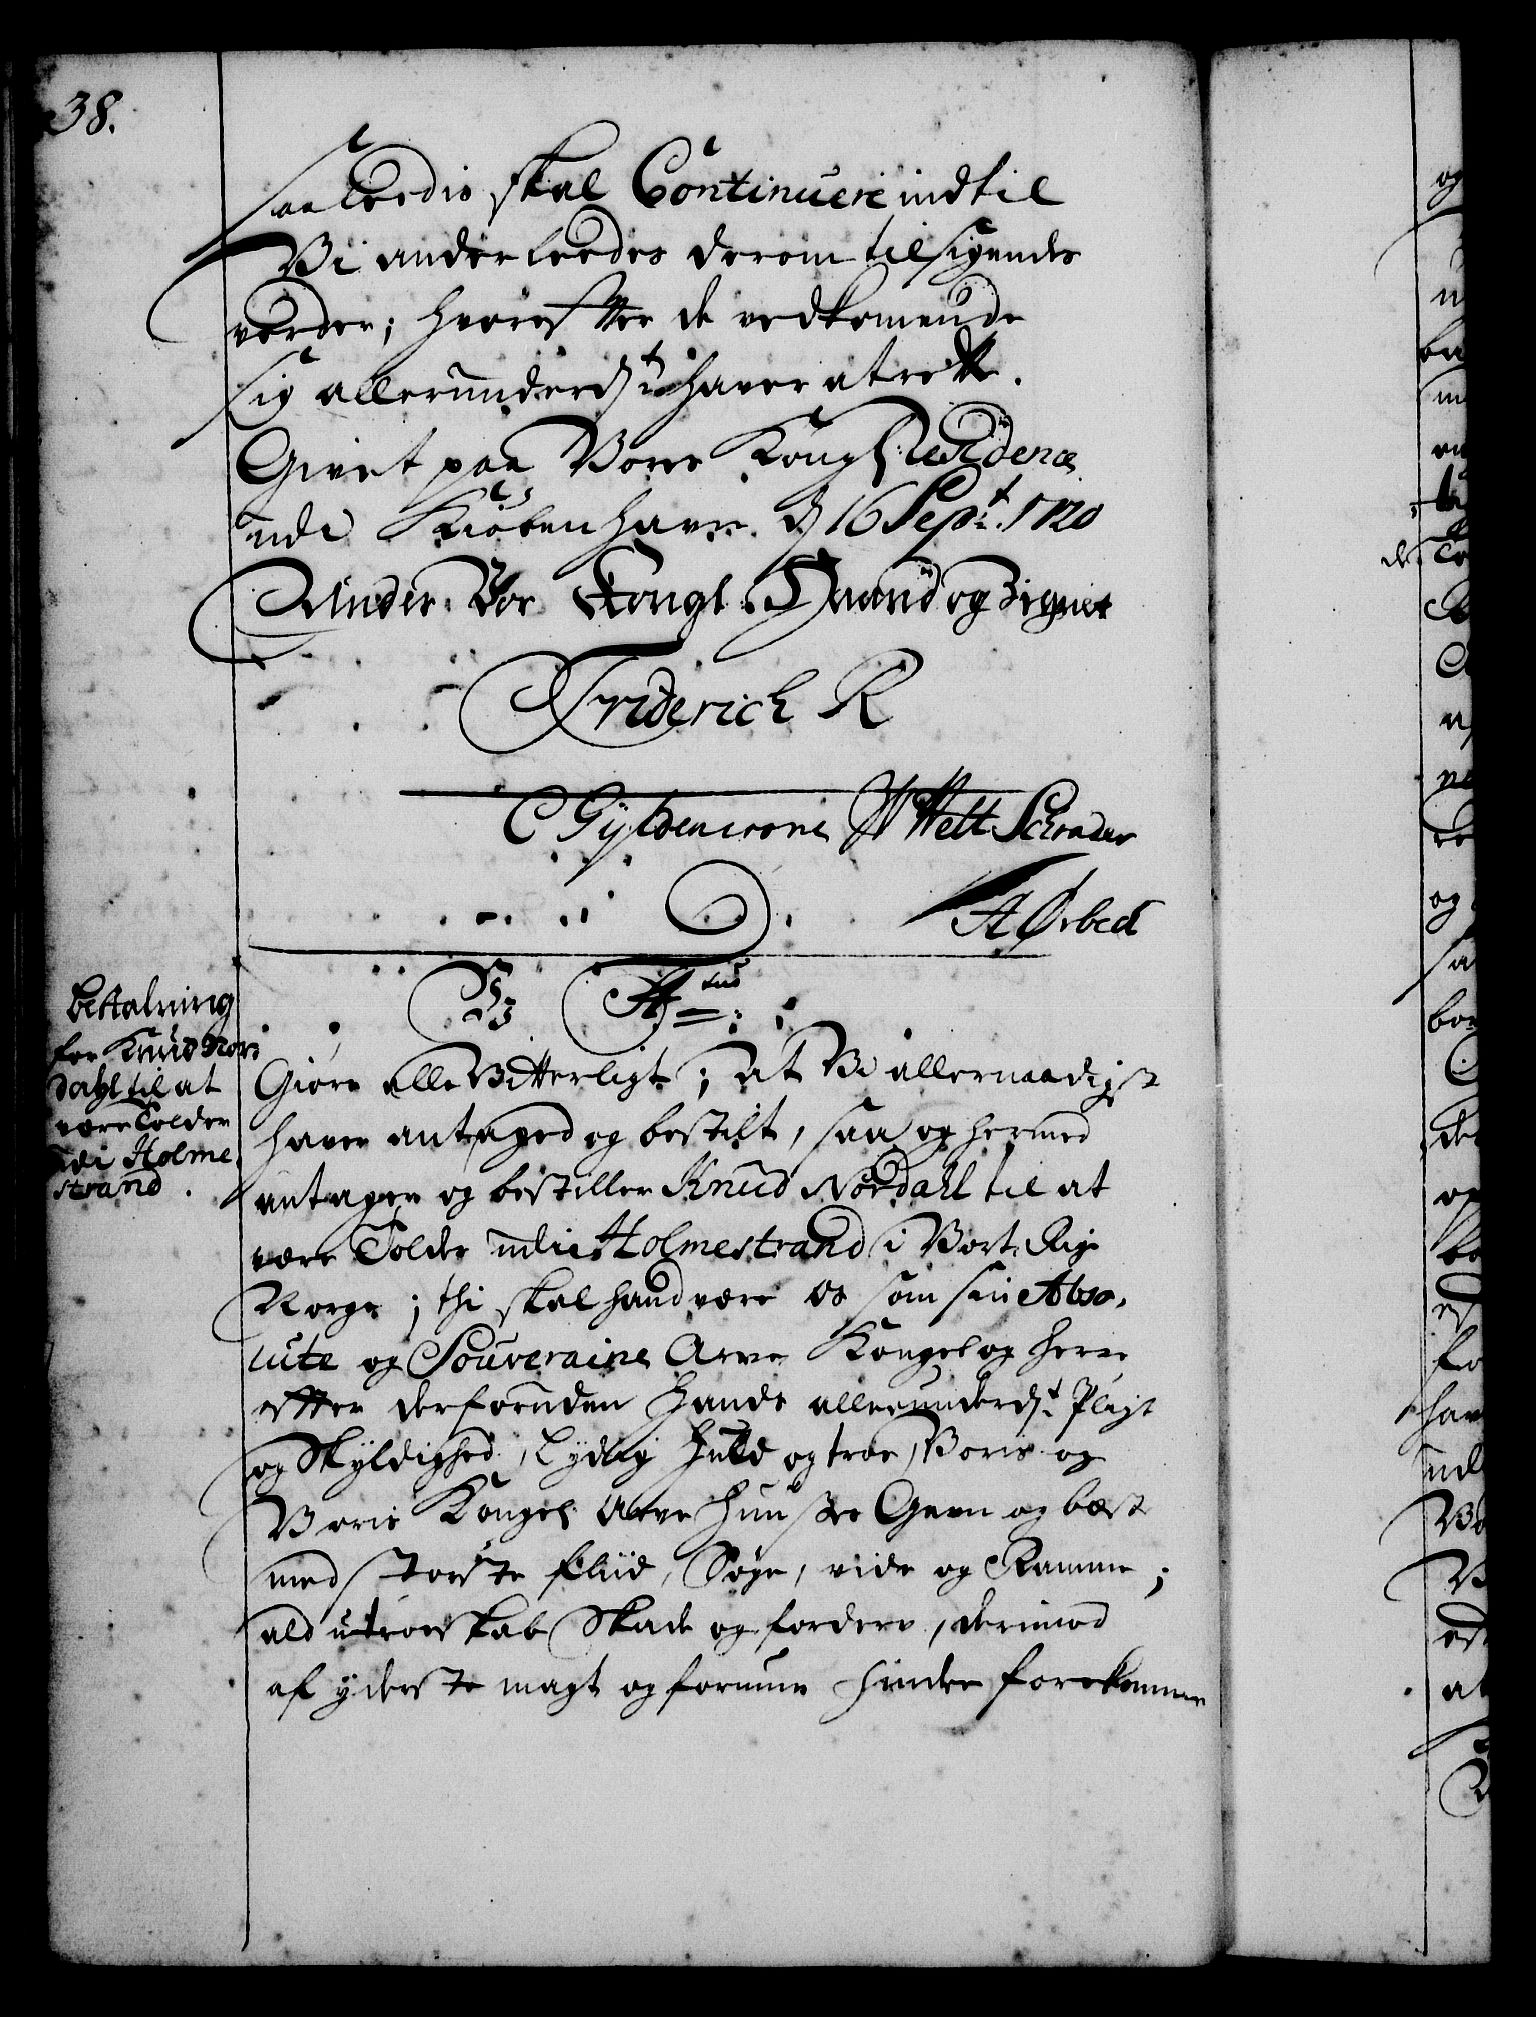 38.
saaleedis skal Continuere indtil
Vi anderleedes derom tilsigendes
vorder; hvoreffter de vedkomende
sig allerunderdt haver at rette.
Givet paa Vores Kongl: Residence
udi Kiöbenhavn d 16 Sept. 1720
Under Vor Kongl. Haand og Zignet
Friderich R
C Gÿldencrone W Welt Schrader
A Ørbech
Betalning
for Knud Nor
dahl til at
være Tolder
udi Holme
strand.
F 4 tus
Giöre alle Vitterligt; at Vi allernaadigst
haver antaged og bestilt, saa og hermed
antager og bestiller Knud Nordahl til at
være Tolder udi Holmestrand i Vort Rige
Norge; thi skal hand være Os som sin Abso,
lute og Souveraine Arve Konge og Herre
effter derforuden hands allerunderdt Pligt
og Skÿldighed, lÿdig huld og troe, Voris og
Voris Kongel. Arve Huuses Gavn og bæste
med største fliid, Søge, vide og Ramme;
ald utroeskab Skade og forderv, derimod
af ÿderste magt og formue hindre forekomme